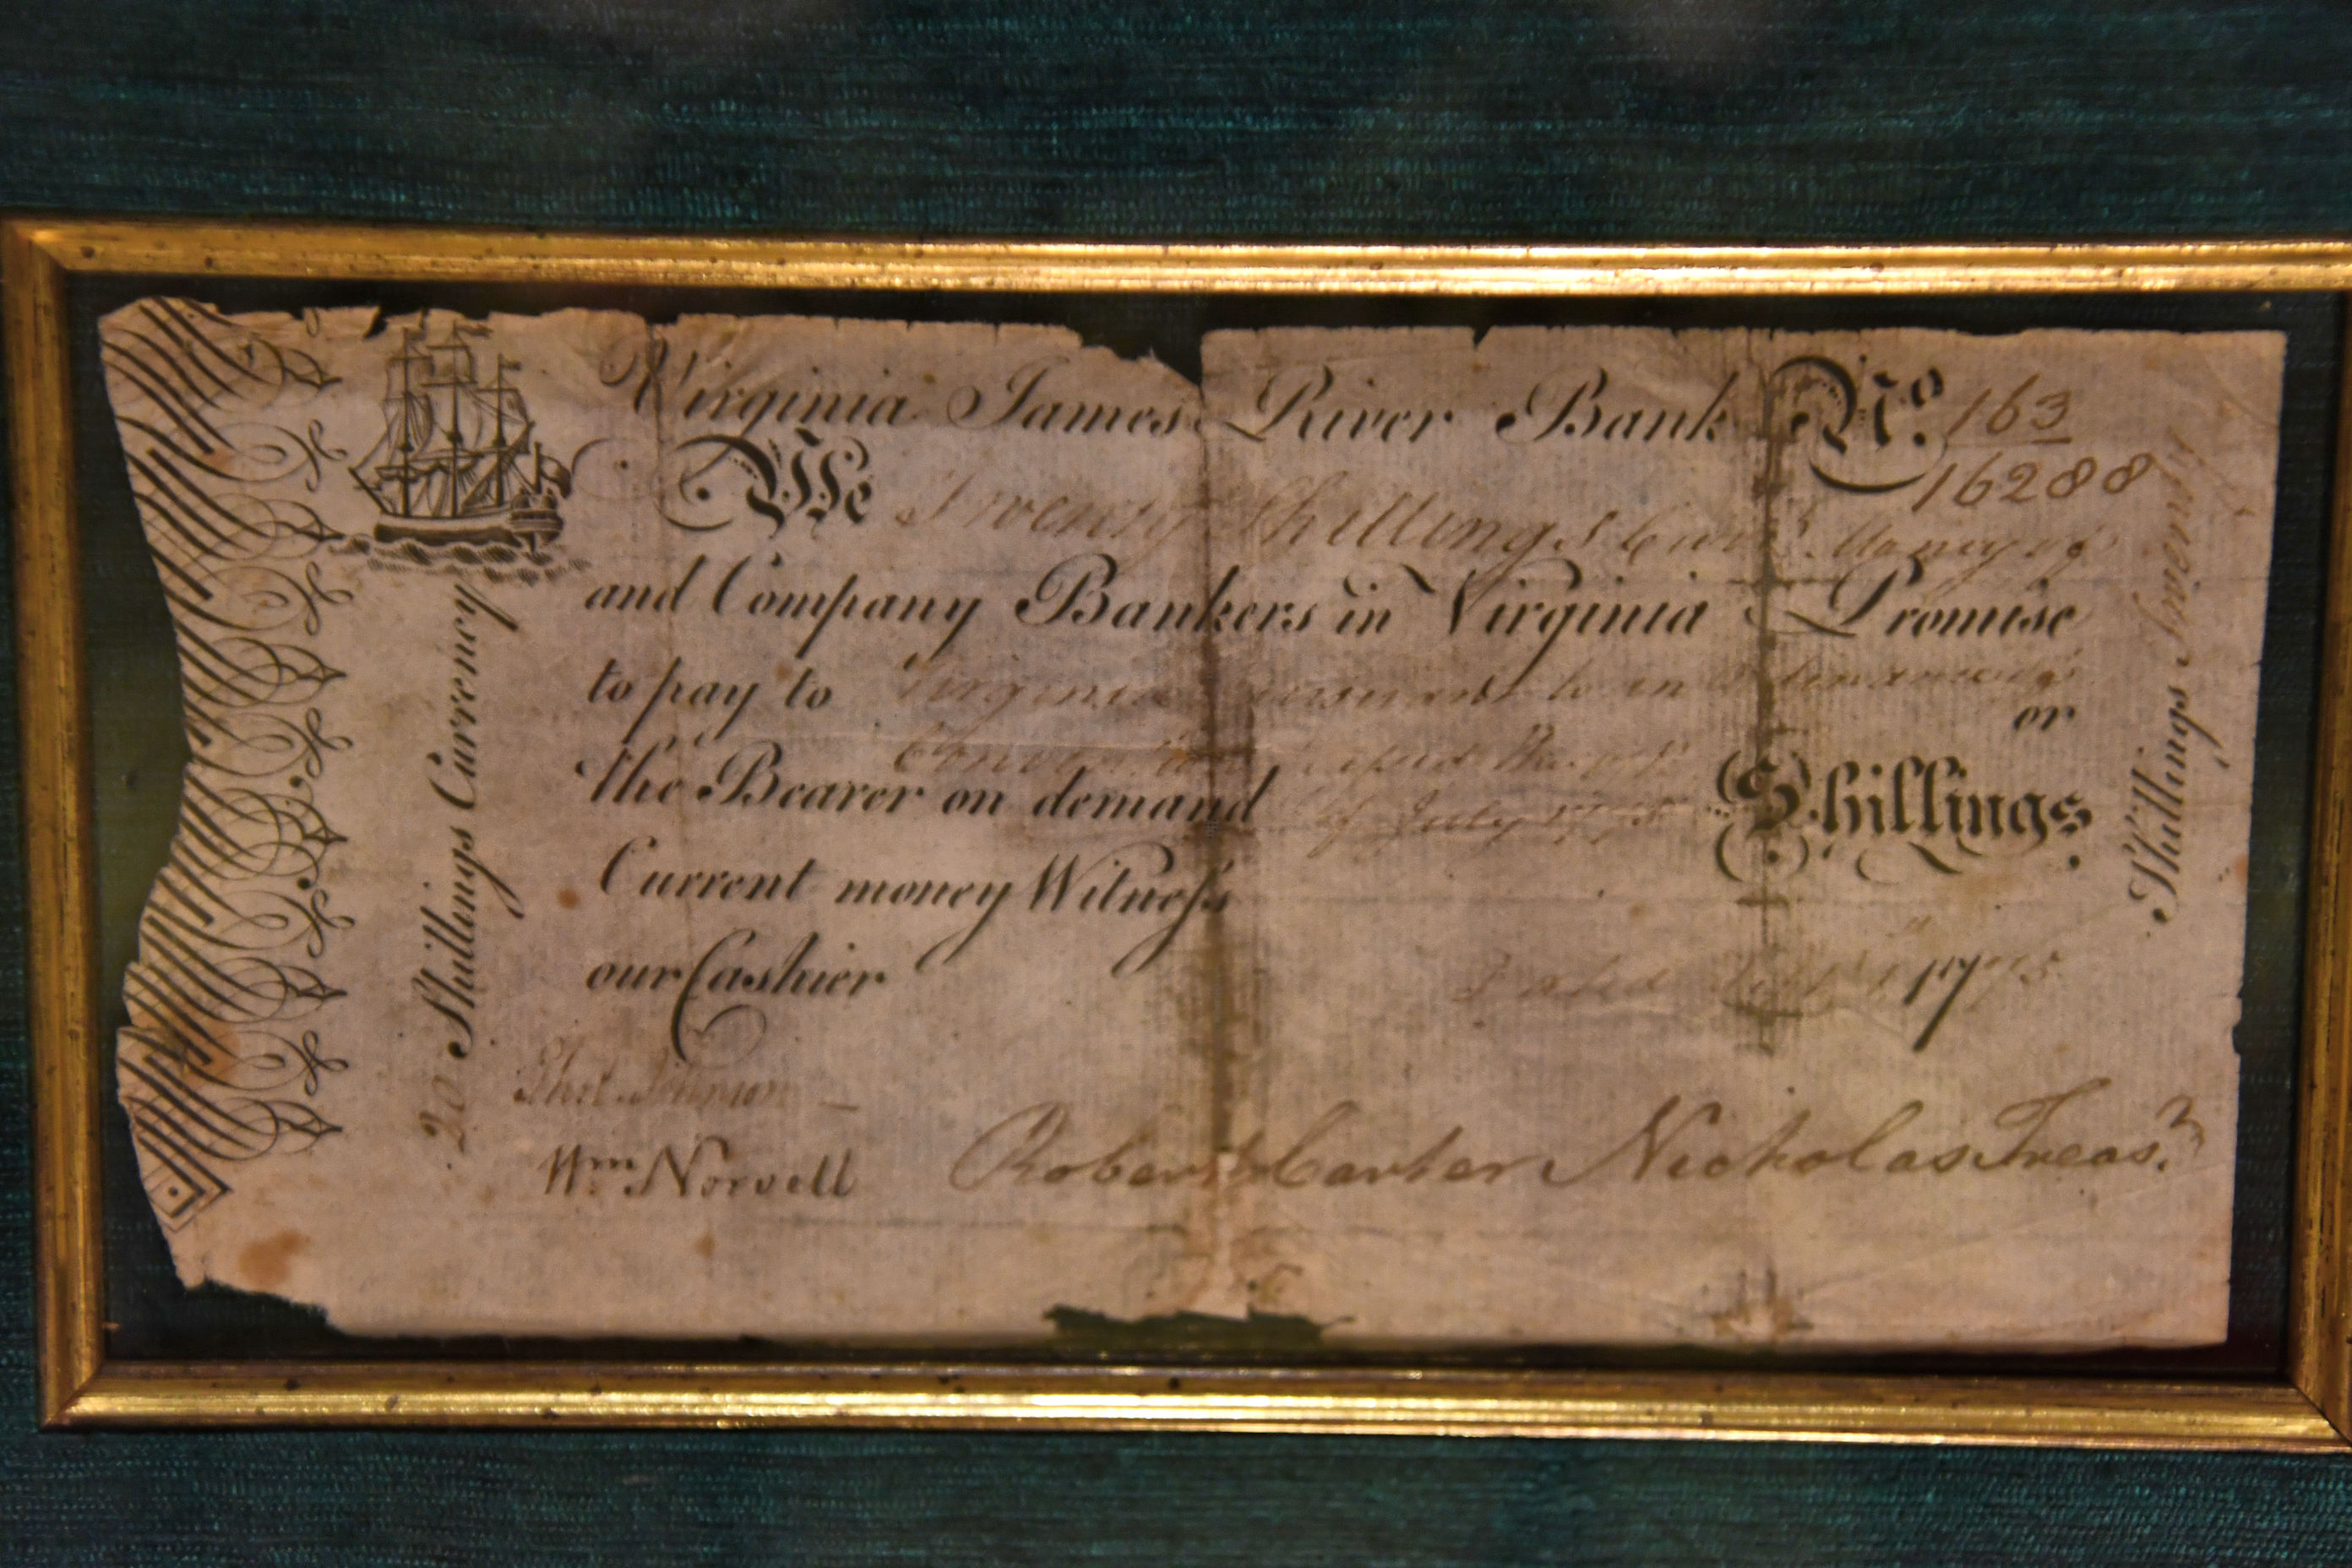 Virginia James River Bank No. 163
16288
We Twenty Shillings Curr.t Money of
and Company Bankers in Virginia Promise
to pay to Virginia
or
the Bearer on demand of July 1775 Shillings
Current money Witness
our Cashier
Dated 1775
Johnson
Wm. Norvell Robert Carter Nicholas Treas.r
20 Shillings Currency
Shillings Twenty